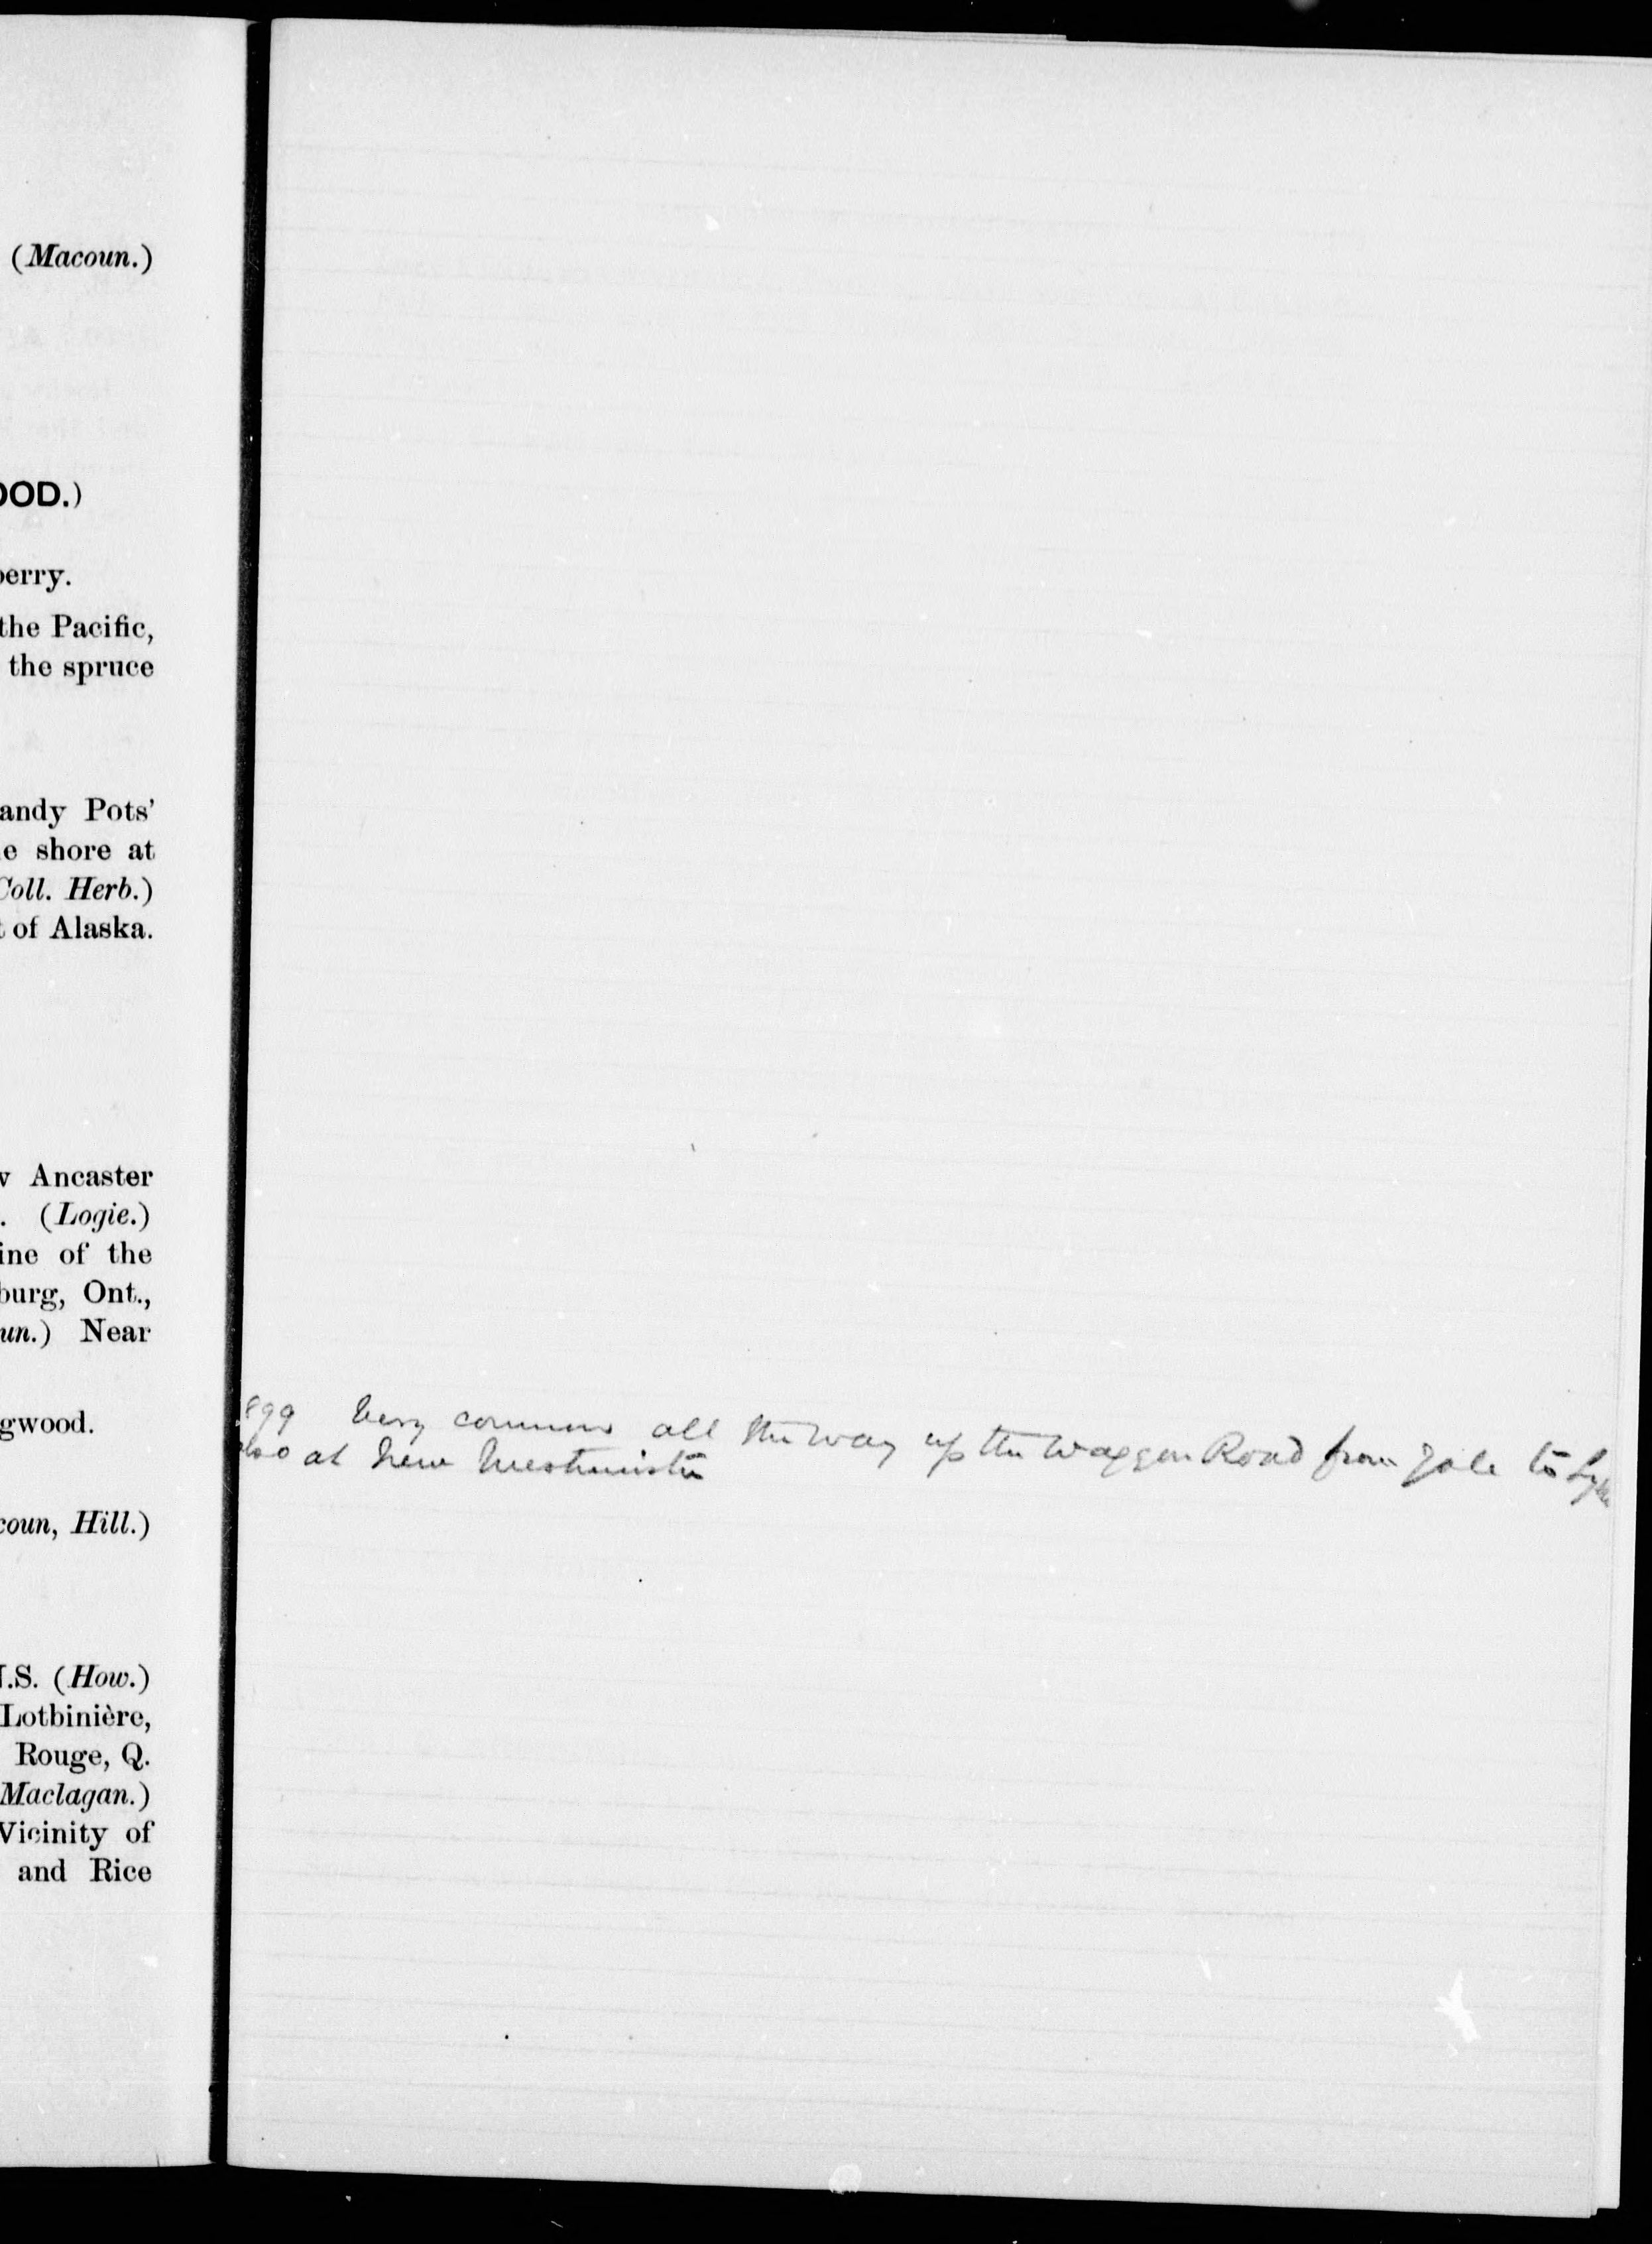 (Macoun.)
OOD.)
berry.
the Pacific,
the spruce
andy Pots'
e shore at
Coll. Herb.)
t of Alaska.
w Ancaster
. (Logie.)
ine of the
burg, Ont.,
un.) Near
gwood.
coun, Hill.)
N.S. (How.)
Lotbinière,
Rouge, Q.
Maclagan.)
Vicinity of
and Rice
899 Very common all the way up the Waggon Road from Yale to
also at New Westminster